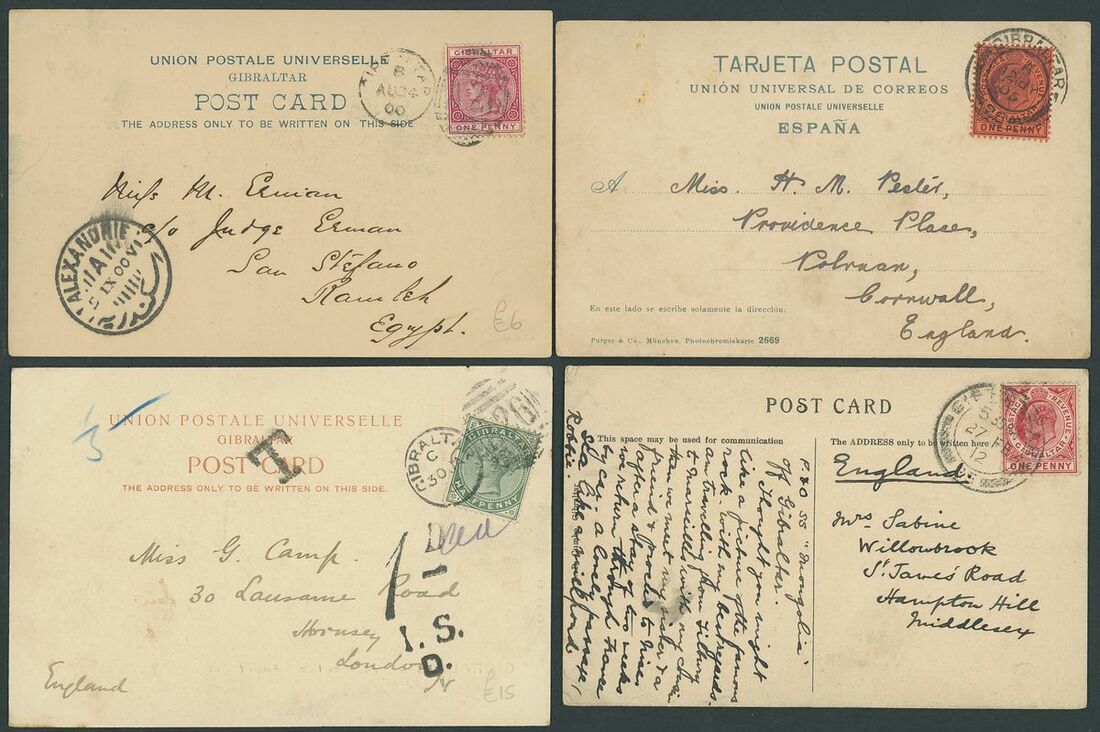 UNION POSTALE UNIVERSELLE
GIBRALTAR
POST CARD
THE ADDRESS ONLY TO BE WRITTEN ON THIS SIDE
GIBRALTAR
B
AU 24
00
GIBRALTAR
ONE PENNY
Miss M. Erman
c/o Judge Erman
San Stéfano
Ramleh
Egypt.
ALEXANDRIE
IX 00
£6
TARJETA POSTAL
UNIÓN UNIVERSAL DE CORREOS
UNION POSTALE UNIVERSELLE
ESPAÑA
GIBRALTAR
POSTAGE REVENUE
GIBRALTAR
ONE PENNY
A Miss. H. M. Pester,
Providence Place,
Polruan,
Cornwall,
England.
En este lado se escribe solamente la dirección.
Purger & Co., München. Photochromiekarte 2669
UNION POSTALE UNIVERSELLE
GIBRALTAR
POST CARD
THE ADDRESS ONLY TO BE WRITTEN ON THIS SIDE.
T
GIBRALTAR
C
30
GIBRALTAR
HALFPENNY
1 D
I. S.
O.
Miss G. Camp.
30 Lausanne Road
Hornsey
London
N
England
£15
POST CARD
This space may be used for communication
The ADDRESS only to be written here
27 FE
12
POSTAGE REVENUE
GIBRALTAR
ONE PENNY
P & O SS "Mongolia"
off Gibraltar.
Thought you might
like a picture of the famous
rock. With my best regards.
am travelling from Tilbury
to Marseilles with my
then we meet my &
friend & proceed to Nice
after a stay of two weeks
we return through France
by car. a lovely passage,
England.
Mrs Sabine
Willowbrook
St James' Road
Hampton Hill
Middlesex